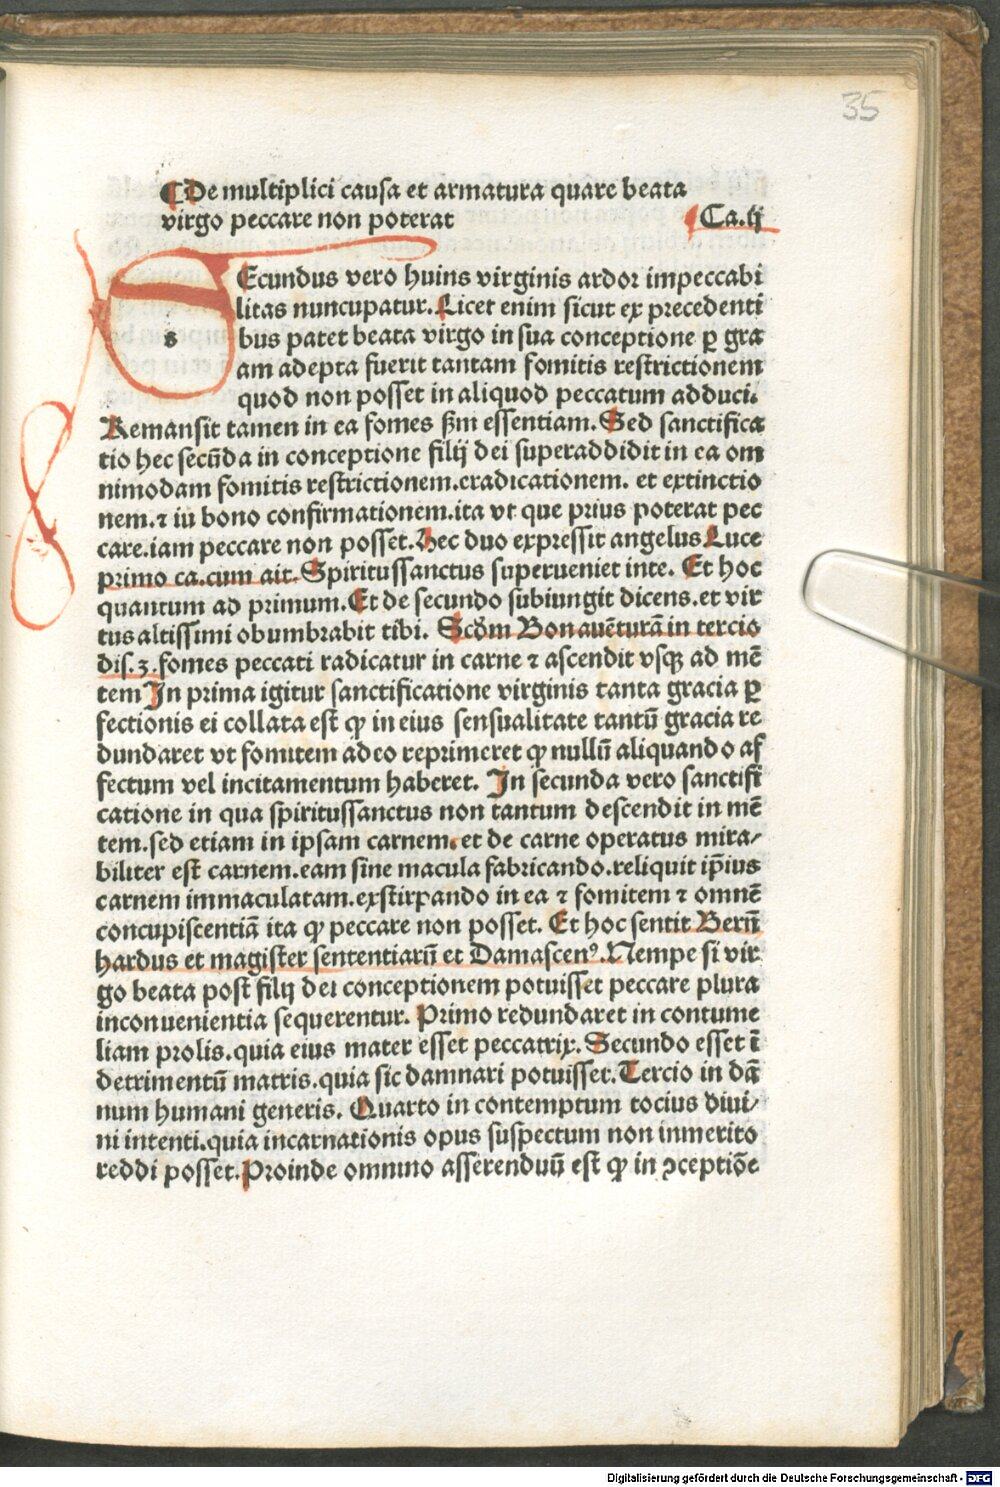 35
¶De multiplici causa et armatura quare beata
virgo peccare non poterat Ca.ij
sEcundus vero huius virginis ardor impeccabi
litas nuncupatur. Licet enim sicut ex precedenti
bus patet beata virgo in sua conceptione ꝑ gra
am adepta fuerit tantam fomitis restrictionem
quod non posset in aliquod peccatum adduci.
Remansit tamen in ea fomes ẜm essentiam. Sed sanctifica
tio hec secūda in conceptione filij dei superaddidit in ea om
nimodam fomitis restrictionem.eradicationem. et extinctio
nem.⁊ iu bono confirmationem.ita vt que prius poterat pec
care.iam peccare non posset. Hec duo expressit angelus Luce
primo ca.cum ait. Spiritussanctus superueniet inte. Et hoc
quantum ad primum. Et de secundo subiungit dicens.et vir
tus altissimi obumbrabit tibi. Scd̄m Bonauētūrā in tercio
dis.3.fomes peccati radicatur in carne ⁊ ascendit vsqꝫ ad mē
tem In prima igitur sanctificatione virginis tanta gracia ꝑ
fectionis ei collata est ꝙ in eius sensualitate tantū gracia re
dundaret vt fomitem adeo reprimeret ꝙ nullū aliquando af
fectum vel incitamentum haberet. In secunda vero sanctifi
catione in qua spiritussanctus non tantum descendit in mē
tem.sed etiam in ipsam carnem.et de carne operatus mira/
biliter est carnem.eam sine macula fabricando.reliquit ip̄ius
carnem immaculatam.exstirpando in ea ⁊ fomitem ⁊ omnē
concupiscentiā ita ꝙ peccare non posset. Et hoc sentit Bern̄
hardus et magister sententiarū et Damascenꝰ. Nempe si vir
go beata post filij dei conceptionem potuisset peccare plura
inconuenientia sequerentur. Primo redundaret in contume
liam prolis.quia eius mater esset peccatrix. Secundo esset ī
detrimentū matris.quia sic damnari potuisset. Tercio in dā
num humani generis. Quarto in contemptum tocius diui/
ni intenti.quia incarnationis opus suspectum non inmerito
reddi posset. Proinde omnino asserenduū est ꝙ in ꝯceptiōe
Digitalisierung gefördert durch die Deutsche Forschungsgemeinschaft - DFG